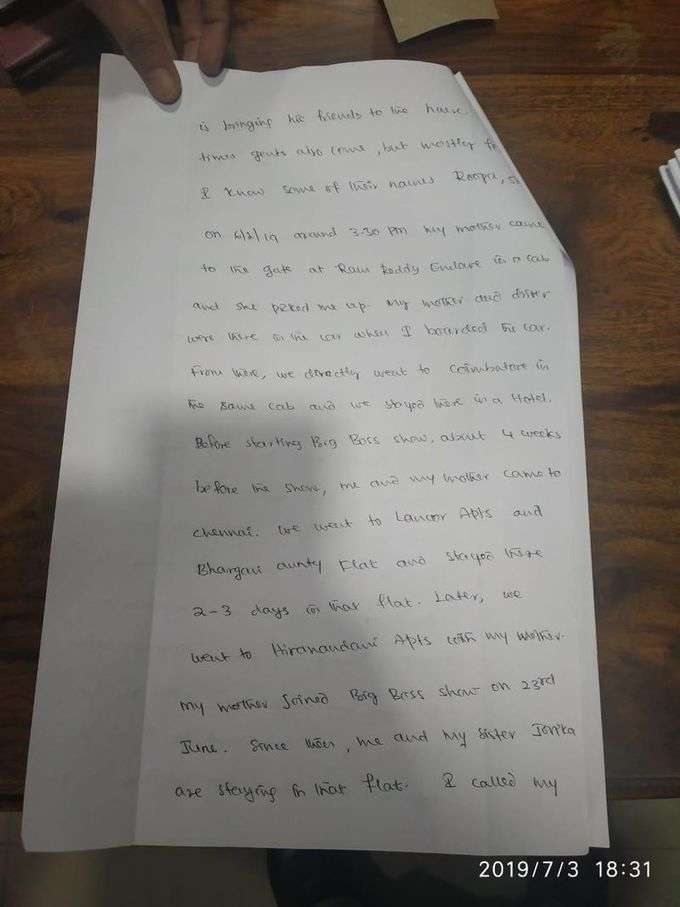 is bringing his friends to the house.
times gents also come, but mostly
I know some of their names Roopa,
on 6/2/19 around 3-30 PM my mother came
to the gate at Ram Reddy Enclave in a cab
and she picked me up. My mother and driver
were there in the car when I boarded the car.
From there, we directly went to Coimbatore in
the same cab and we stayed there in a Hotel.
Before starting Big Boss show, about 4 weeks
before the show, me and my mother came to
chennai. We went to Lancor Apts and
Bhargavi aunty Flat and stayed there
2-3 days in that flat. Later, we
went to Hiranandani Apts with my mother.
My mother Joined Big Boss show on 23rd
June. Since then, me and my sister Jonika
are staying in that flat. I called my
2019/7/3 18:31